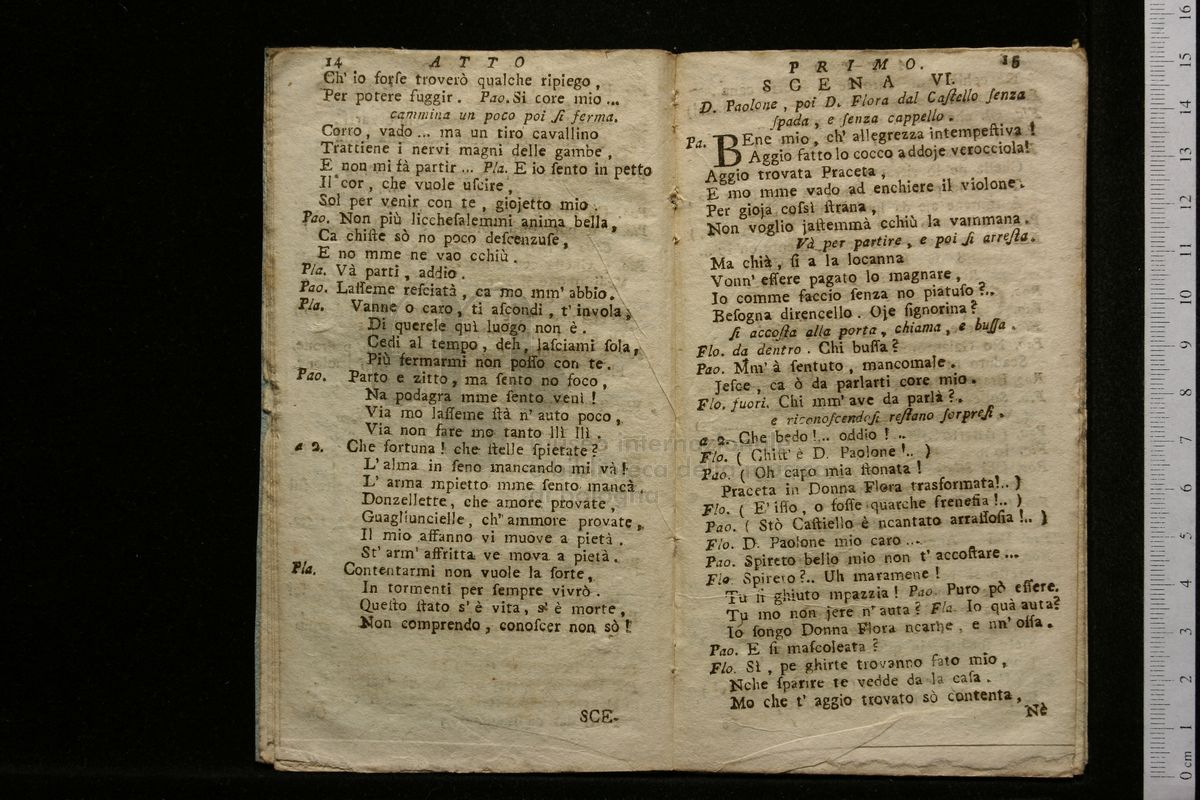 14 ATTO
Ch' io forſe troverò qualche ripiego,
Per potere fuggir. Pao. Sì core mio ...
cammina un poco poi ſi ferma.
Corro, vado ... ma un tiro cavallino
Trattiene i nervi magni delle gambe,
E non mi fà partir ... Pla. E io ſento in petto
Il cor, che vuole uſcire,
Sol per venir con te, giojetto mio.
Pao. Non più liccheſalemmi anima bella,
Ca chiſte sò no poco deſcenzuſe,
E no mme ne vao cchiù.
Pla. Và parti, addio.
Pao. Laſſeme reſciatà, ca mo mm' abbio.
Pla. Vanne o caro, ti aſcondi, t' invola,
Di querele quì luogo non è.
Cedi al tempo, deh, laſciami ſola,
Più fermarmi non poſſo con te.
Pao. Parto e zitto, ma ſento no foco,
Na podagra mme ſento venì!
Via mo laſſeme ſtà n' auto poco,
Via non fare mo tanto llì llì.
a 2. Che fortuna! che ſtelle ſpierate?
L' alma in ſeno mancando mi và!
L' arma mpietto mme ſento mancà.
Donzellette, che amore provate,
Guagliuncielle, ch' ammore provate,
Il mio affanno vi muove a pietà.
St' arm' affritta ve mova a pietà.
Pla. Contentarmi non vuole la ſorte,
In tormenti per ſempre vivrò.
Queſto ſtato s' è vita, s' è morte,
Non comprendo, conoſcer non sò!
SCE-
PRIMO. 15
SCENA VI.
D. Paolone, poi D. Flora dal Caſtello ſenza
ſpada, e ſenza cappello.
Pa. BEne mio, ch' allegrezza intempeſtiva!
Aggio fatto lo cocco addoje verocciola!
Aggio trovata Praceta,
E mo mme vado ad enchiere il violone.
Per gioja coſsì ſtrana,
Non voglio jaſtemmà cchiù la vammana.
Và per partire, e poi ſi arreſta.
Ma chià, ſi a la locanna
Vonn' eſſere pagato lo magnare,
Io comme faccio ſenza no piatuſo?..
Beſogna direncello. Oje ſignorina?
ſi accoſta alla porta, chiama, e buſſa.
Flo. da dentro. Chi buſſa?
Pao. Mm' à ſentuto, mancomale.
Jeſce, ca ò da parlarti core mio.
Flo. fuori. Chi mm' ave da parlà?..
e riconoſcendoſi reſtano ſorpreſi.
a 2. Che bedo!.. oddio!..
Flo. ( Chiſt' è D. Paolone!.. )
Pao. ( Oh capo mia ſtonata!
Praceta in Donna Flora trasformata!.. )
Flo. ( E' iſſo, o foſſe quarche freneſia!.. )
Pao. ( Stò Caſtiello è ncantato arraſſoſia!.. )
Flo. D. Paolone mio caro ...
Pao. Spireto bello mio non t' accoſtare ...
Flo. Spireto?.. Uh maramene!
Tu ſi ghiuto mpazzia! Pao. Puro pò eſſere.
Tu mo non jere n' auta? Fla. Io quà auta?
Io ſongo Donna Flora ncarne, e nn' oſſa.
Pao. E ſi maſcoleata?
Flo. Sì, pe ghirte trovanno fato mio,
Nche ſparire te vedde da la caſa.
Mo che t' aggio trovato sò contenta,
Nè